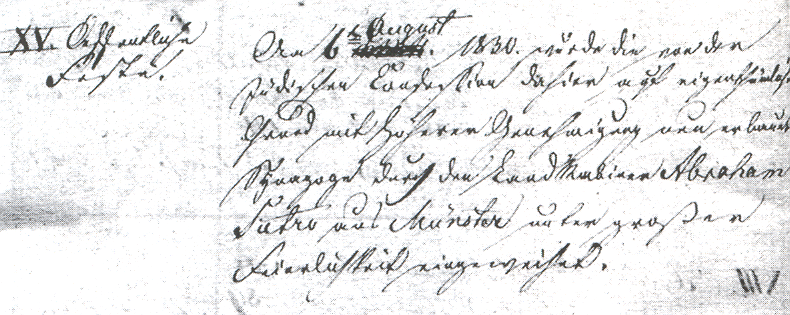 XV. Oeffentliche
Feste.
Am 6t August
1830. wurde die von der
jüdischen Confession dahier auf eigenthümlichem
Grund mit höherer Genehmigung neu erbaute
Synagoge durch den Land Rabiner Abraham
Sutro aus Münster unter großer
Feierlichkeit eingeweihet.